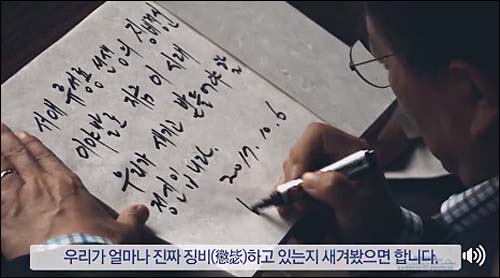 서애 류성룡 선생의 징비정신
이야말로 지금 이 시대
우리가 새기고
정신입니다.
2017. 10. 6
우리가 얼마나 진짜 징비(懲毖)하고 있는지 새겨봤으면 합니다.